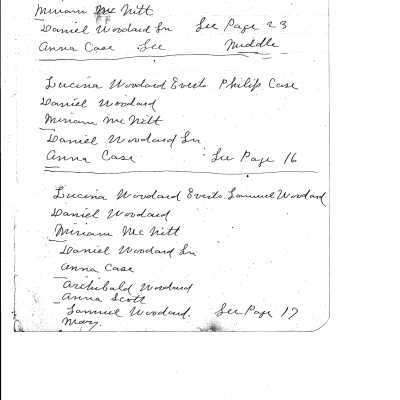 Miriam Mc Nitt
Daniel Woodard Sr See Page 23
Anna Case See Middle
Lucina Woodard Everts Philip Case
Daniel Woodard
Miriam Mc Nitt
Daniel Woodard Sr
Anna Case See Page 16
Lucina Woodard Everts Samuel Woodard
Daniel Woodard
Miriam Mc Nitt
Daniel Woodard Sr
Anna Case
Archibald Woodard
Anna Scott
Samuel Woodard. See Page 17
Mary